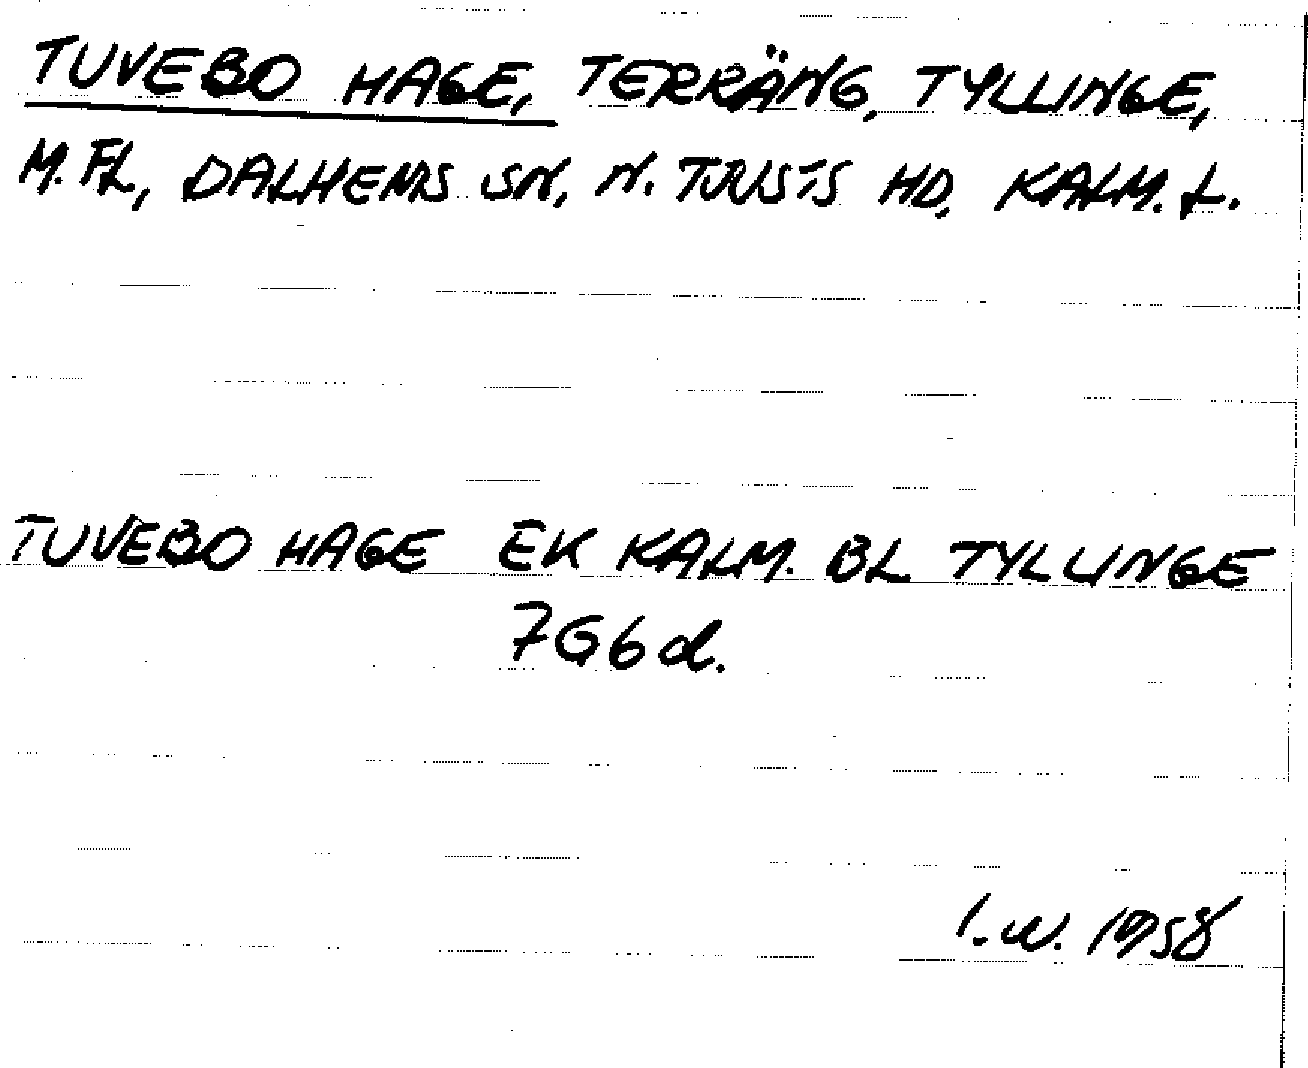 TUVEBO HAGE, TERRÄNG, TYLLINGE,
M.FL, DALHEMS SN, N. TJUSTS HD, KALM. L.
TUVEBO HAGE EK KALM. BL. TYLLINGE
7G6d.
I.W. 1958